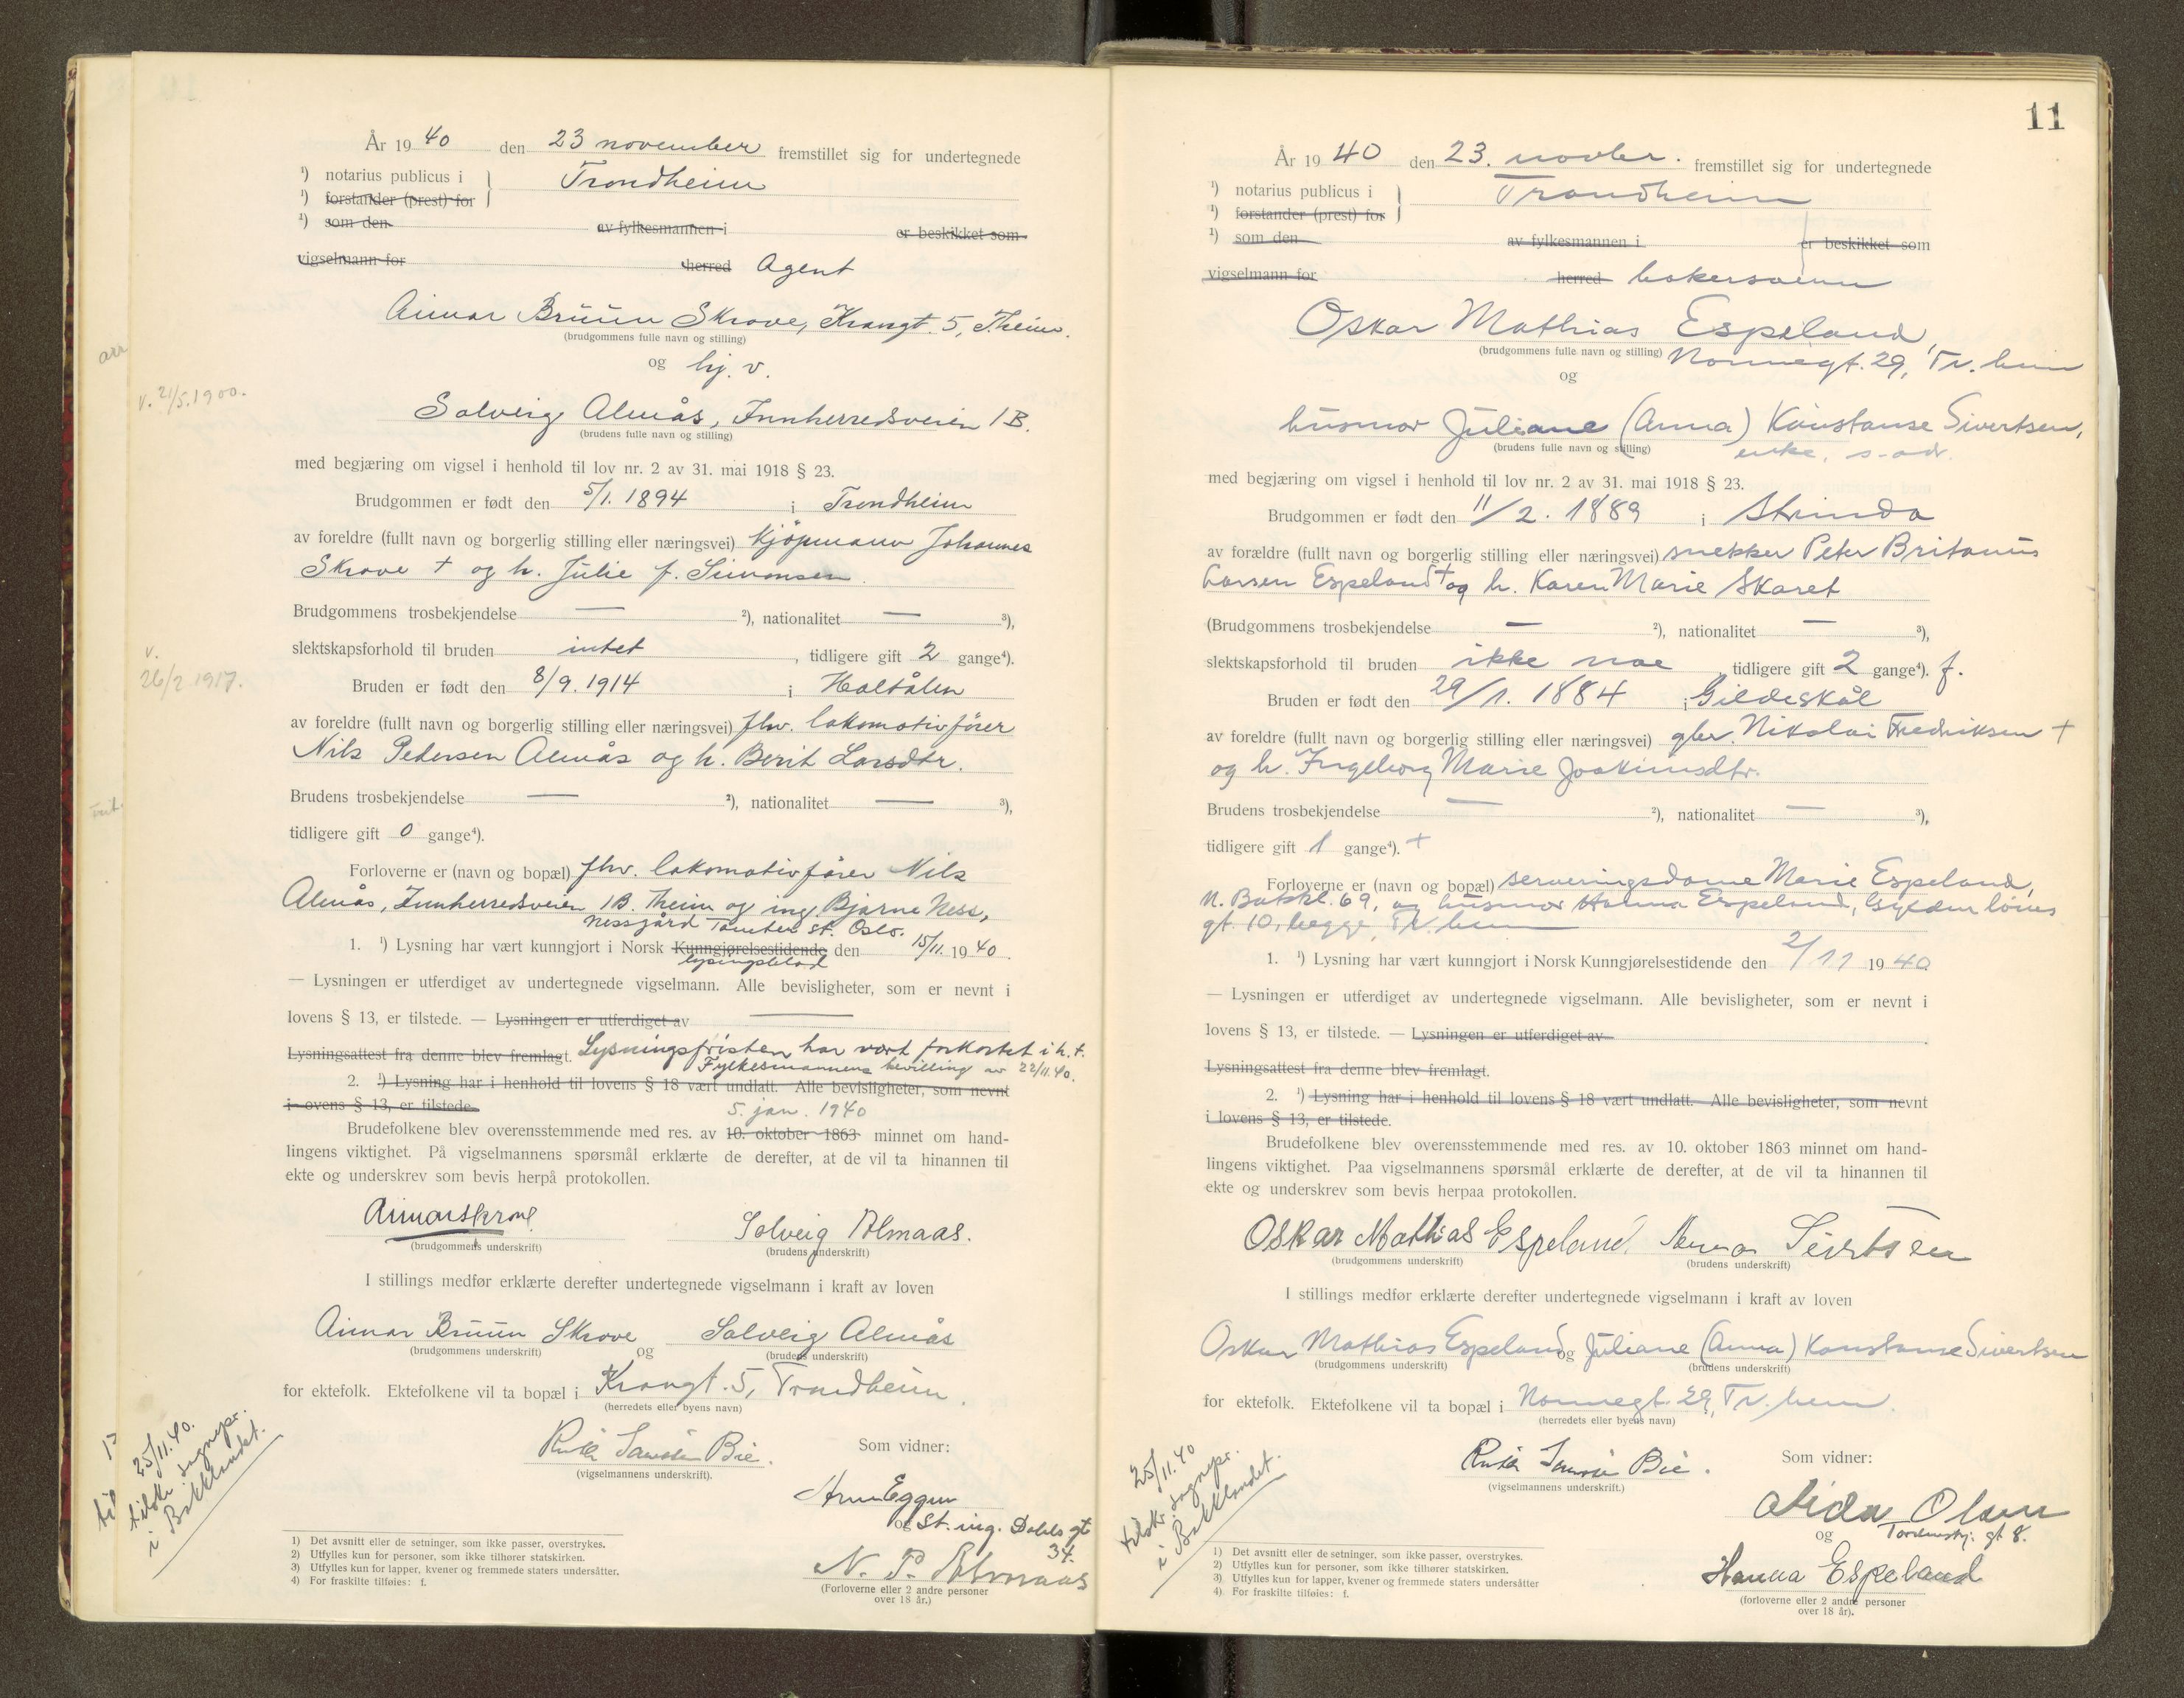 År 1940 den 23 november fremstillet sig for undertegnede
¹) notarius publicus i } Trondheim
¹) forstander (prest) for
¹) som den av fylkesmannen i er beskikket som
vigselmann for herred Agent
Aimar Bruun Skrove, Krangt. 5, Theim.
(brudgommens fulle navn og stilling)
og hj. v.
v. 21/5.1900.
Solveig Almås, Innherredsveien 1B.
(brudens fulle navn og stilling)
med begjæring om vigsel i henhold til lov nr. 2 av 31. mai 1918 § 23.
Brudgommen er født den 5/1. 1894 i Trondheim
av foreldre (fullt navn og borgerlig stilling eller næringsvei) Kjöpmann Johannes
Skrove + og h. Julie f. Simonsen.
Brudgommens trosbekjendelse — ²), nationalitet — ³),
slektskapsforhold til bruden intet, tidligere gift 2 gange⁴).
v.
26/2 1917.
Bruden er født den 8/9. 1914 i Haltålen
av foreldre (fullt navn og borgerlig stilling eller næringsvei) fhv. lokomotivfører
Nils Pedersen Almås og h. Berit Larsdtr.
Brudens trosbekjendelse — ²), nationalitet — ³),
tidligere gift 0 gange⁴).
Forloverne er (navn og bopæl) fhv. lokomotivfører Nils
Almås, Innherredsveien 1B. Theim og ing. Bjarne Ness,
Nessgård Tomter st. Oslo.
1. ¹) Lysning har vært kunngjort i Norsk Kunngjørelsestidende den 15/11. 1940.
lysingsblad
— Lysningen er utferdiget av undertegnede vigselmann. Alle bevisligheter, som er nevnt i
lovens § 13, er tilstede. — Lysningen er utferdiget av —
Lysningsattest fra denne blev fremlagt. Lysningsfristen har vært forkortet i h. t.
Fylkesmannens bevilling av 22/11.40.
2. ¹) Lysning har i henhold til lovens § 18 vært undlatt. Alle bevisligheter, som nevnt
i ovens § 13, er tilstede.
5. jan. 1940
Brudefolkene blev overensstemmende med res. av 10. oktober 1863 minnet om hand-
lingens viktighet. På vigselmannens spørsmål erklærte de derefter, at de vil ta hinannen til
ekte og underskrev som bevis herpå protokollen.
Aimar Skrove Solveig Almaas.
(brudgommens underskrift) (brudens underskrift)
I stillings medfør erklærte derefter undertegnede vigselmann i kraft av loven
Aimar Bruun Skrove og Solveig Almås
(brudgommens underskrift) (brudens underskrift)
for ektefolk. Ektefolkene vil ta bopæl i Krangt. 5, Trondheim.
(herredets eller byens navn)
Som vidner:
(vigselmannens underskrift).
Arne Eggen
og St. ing. Dahls gt
34.
N. P. Almaas
(Forloverne eller 2 andre personer
over 18 år.)
25/11.40.
tilskr. sognepr.
i Bakklandet.
1) Det avsnitt eller de setninger, som ikke passer, overstrykes.
2) Utfylles kun for personer, som ikke tilhører statskirken.
3) Utfylles kun for lapper, kvener og fremmede staters undersåtter.
4) For fraskilte tilføies: f.
11
År 1940 den 23. novbr. fremstillet sig for undertegnede
¹) notarius publicus i } Trondheim
¹) forstander (prest) for
¹) som den av fylkesmannen i er beskikket som
vigselmann for herred bakersvenn
Oskar Mathias Espeland,
(brudgommens fulle navn og stilling) Nonnegt. 29, Tr.heim
og
husmor Juliane (Anna) Konstanse Sivertsen,
(brudens fulle navn og stilling) enke, s. adr.
med begjæring om vigsel i henhold til lov nr. 2 av 31. mai 1918 § 23.
Brudgommen er født den 11/2. 1889 i Strinda
av forældre (fullt navn og borgerlig stilling eller næringsvei) snekker Peter Britanus
Larsen Espeland + og h. Karen Marie Skaret
(Brudgommens trosbekjendelse — ²), nationalitet — ³),
slektskapsforhold til bruden ikke noe tidligere gift 2 gange⁴). f.
Bruden er født den 29/1. 1884 i Gildeskål
av foreldre (fullt navn og borgerlig stilling eller næringsvei) gbr. Nikolai Fredriksen +
og h. Ingeborg Marie Joakimsdtr.
Brudens trosbekjendelse — ²), nationalitet — ³),
tidligere gift 1 gange⁴). +
Forloverne er (navn og bopæl) serveringsdame Marie Espeland,
N. Bakkl. 69, og husmor Hanna Espeland, Gyldenløves
gt. 10, begge Tr.heim
1. ¹) Lysning har vært kunngjort i Norsk Kunngjørelsestidende den 2/11 1940
— Lysningen er utferdiget av undertegnede vigselmann. Alle bevisligheter, som er nevnt i
lovens § 13, er tilstede. — Lysningen er utferdiget av
Lysningsattest fra denne blev fremlagt.
2. ¹) Lysning har i henhold til lovens § 18 vært undlatt. Alle bevisligheter, som nevnt
i lovens § 13, er tilstede.
Brudefolkene blev overensstemmende med res. av 10. oktober 1863 minnet om hand-
lingens viktighet. Paa vigselmannens spørsmål erklærte de derefter, at de vil ta hinannen til
ekte og underskrev som bevis herpaa protokollen.
Oskar Mathias Espeland. Anna Sivertsen
(brudgommens underskrift) (brudens underskrift)
I stillings medfør erklærte derefter undertegnede vigselmann i kraft av loven
Oskar Mathias Espeland og Juliane (Anna) Konstanse Sivertsen
(brudgommens underskrift) (brudens underskrift)
for ektefolk. Ektefolkene vil ta bopæl i Nonnegt. 29, Tr.heim.
(herredets eller byens navn)
Som vidner:
(vigselmannens underskrift.)
Aida Olsen
og Tordenskj. gt 8.
Hanna Espeland
(forloverne eller 2 andre personer
over 18 år).
25/11.40
tilskr. sognepr.
i Bakklandet.
1) Det avsnitt eller de setninger, som ikke passer, overstrykes.
2) Utfylles kun for personer, som ikke tilhører statskirken.
3) Utfylles kun for lapper, kvener og fremmede staters undersåtter
4) For fraskilte tilføies: f.